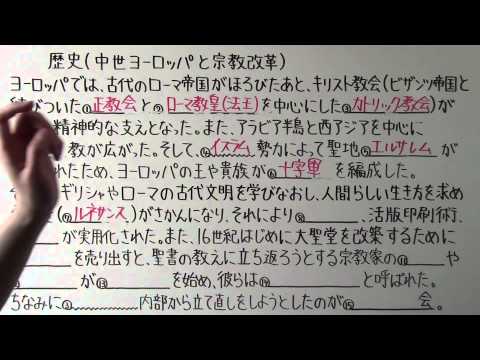 歴史(中世ヨーロッパと宗教改革)
ヨーロッパでは、古代のローマ帝国がほろびたあと、キリスト教会(ビザンツ帝国と
びついた①正教会と②ローマ教皇(法王)を中心にした③カトリック教会)が
精神的な支えとなった。また、アラビア半島と西アジアを中心に
教が広がった。そして、イスラム勢力によって聖地⑤エルサレムが
れたため、ヨーロッパの王や貴族が⑥十字軍を編成した。
ギリシャやローマの古代文明を学びなおし、人間らしい生き方を求め
(⑦ルネサンス)がさかんになり、それにより⑧、活版印刷術、
が実用化された。また、16世紀はじめに大聖堂を改築するために
を売り出すと、聖書の教えに立ち返ろうとする宗教家の⑪や
が⑬を始め、彼らは⑭と呼ばれた。
ちなみに③内部から立て直しをしようとしたのが⑮会。